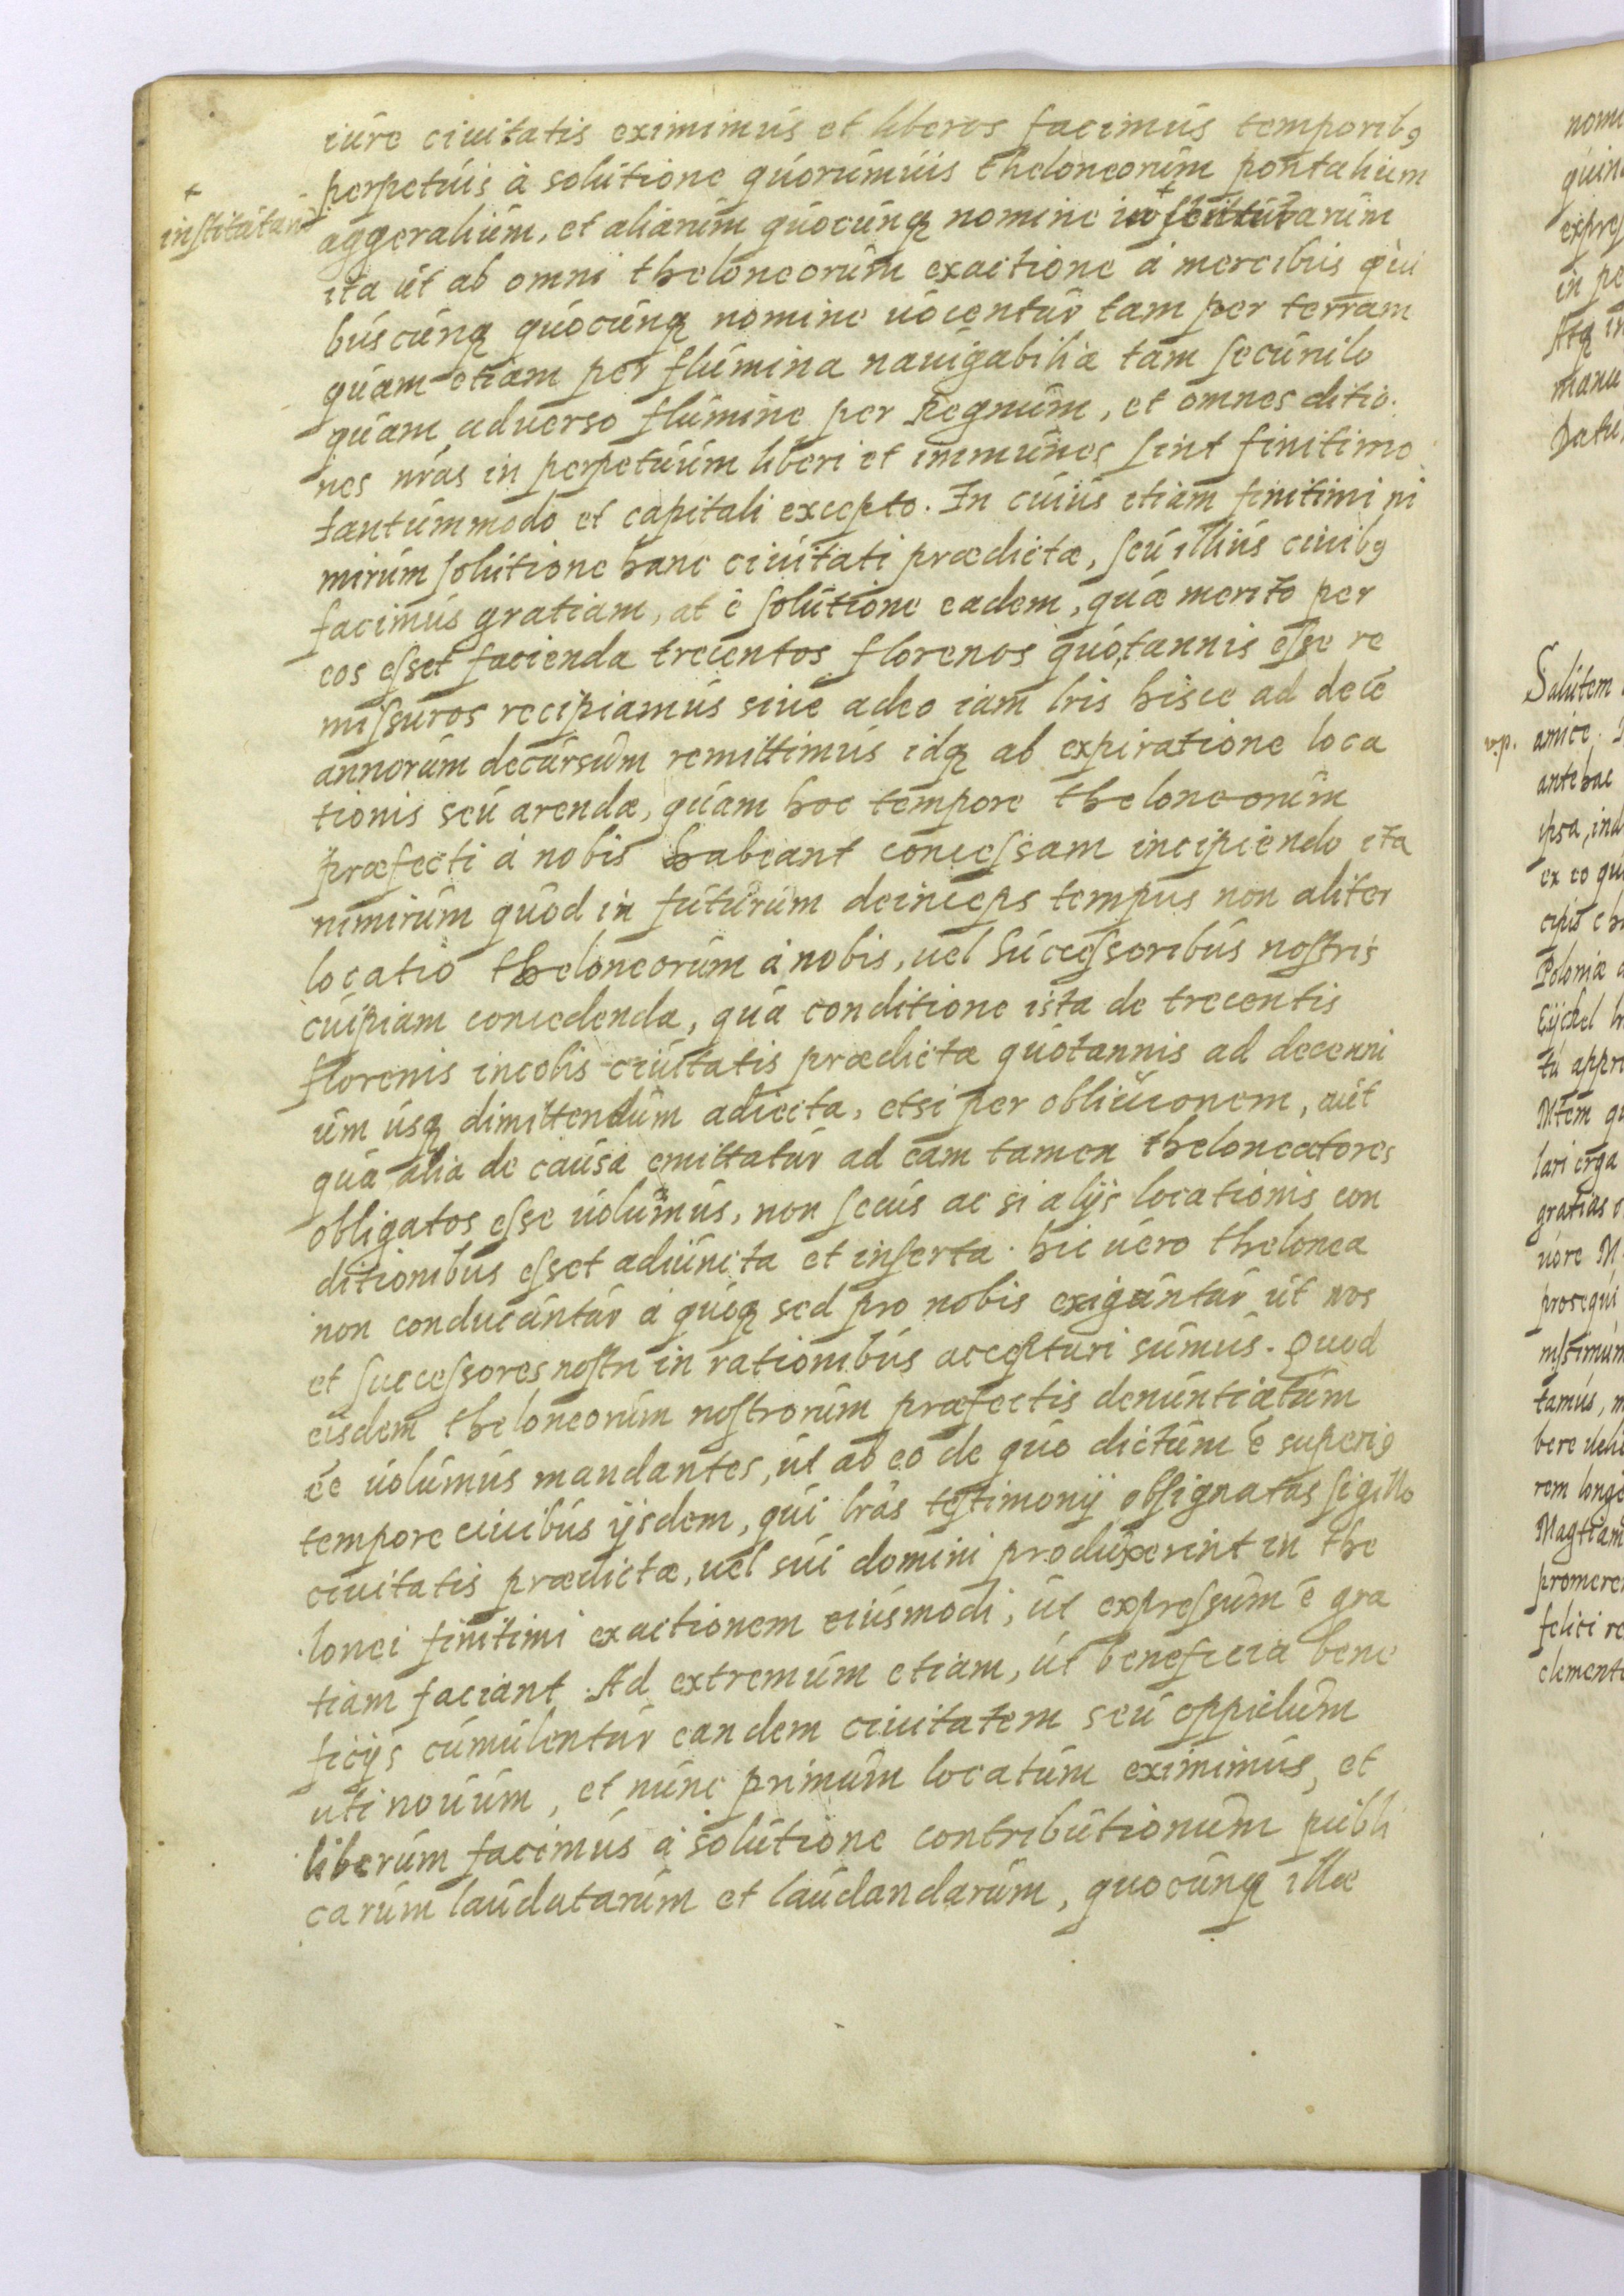 iure ciuitatis eximimus et liberos facimus temporibq
perpetuis à solutione quorumuis theloneorum pontalium
+
institutaru
aggeralium, et aliarum quocunq nomine arum
ita ut ab omni theloneorum exactione à mercibus qui
buscunq quocunq nomine uocentur tam per terram
quam etiam per flumina nauigabilia tam secundo
quam aduerso flumine per Regnum, et omnes ditio.
nes nras in perpetuum liberi et immunes sint finitimo
tantummodo et capitali excepto. In cuius etiam finitimi ni
mirum solutione hanc ciuitati prædictæ, seu illius ciuibq
facimus gratiam, at è solutione eadem, quæ merito per
eos esset facienda trecentos florenos quotannis esse re
missuros recipiamus siue adeo iam lris hisce ad dece
annorum decursum remittimus idq ab expiratione loca
tionis seu arendæ, quam hoc tempore theloneorum
præfecti à nobis habeant concessam incipiendo ita
nimirum quod in futurum deinceps tempus non aliter
locatio theloneorum à nobis, uel Successoribus nostris
cuipiam concedenda, quà conditione ista de trecentis
florenis incolis ciuitatis prædictæ quotannis ad decenni
um usq dimittendum adiecta, etsi per obliuionem, aut
qua alia de causa omittatur ad eam tamen theloneatores
obligatos esse uolumus, non secus ac si alijs locationis con
ditionibus esset adiuncta et inserta. hic uero thelonea
non conducantur à quoq sed pro nobis exigantur ut nos
et successores nostri in rationibus accepturi sumus. Quod
eisdem theloneorum nostrorum præfectis denuntiatum
ee uolumus mandantes, ut ab eo de quo dictum è superiq
tempore ciuibus ijsdem, qui lras testimonij obsignatas sigillo
ciuitatis prædictæ, uel sui domini produxerint in the
lonei finitimi exactionem eiusmodi, ut expressum è gra
tiam faciant. Ad extremum etiam, ut beneficia bene
ficijs cumulentur eandem ciuitatem seu oppidum
uti nouum, et nunc primum locatum eximimus, et
liberum facimus à solutione contributionum publi
carum laudatarum et laudandarum, quocunq illæ
nom
quin
expres
in pe
Atq in
manu
Datu
Salutem
v.p. amice.
antehac
ipsa, ind
ex eo qu
Poloniæ
tu appre
Mtem qu
lari erga
gratias
uore M
prosequi
tamus, m
bere
rem longe
Magtiam
promere
felici re
clement